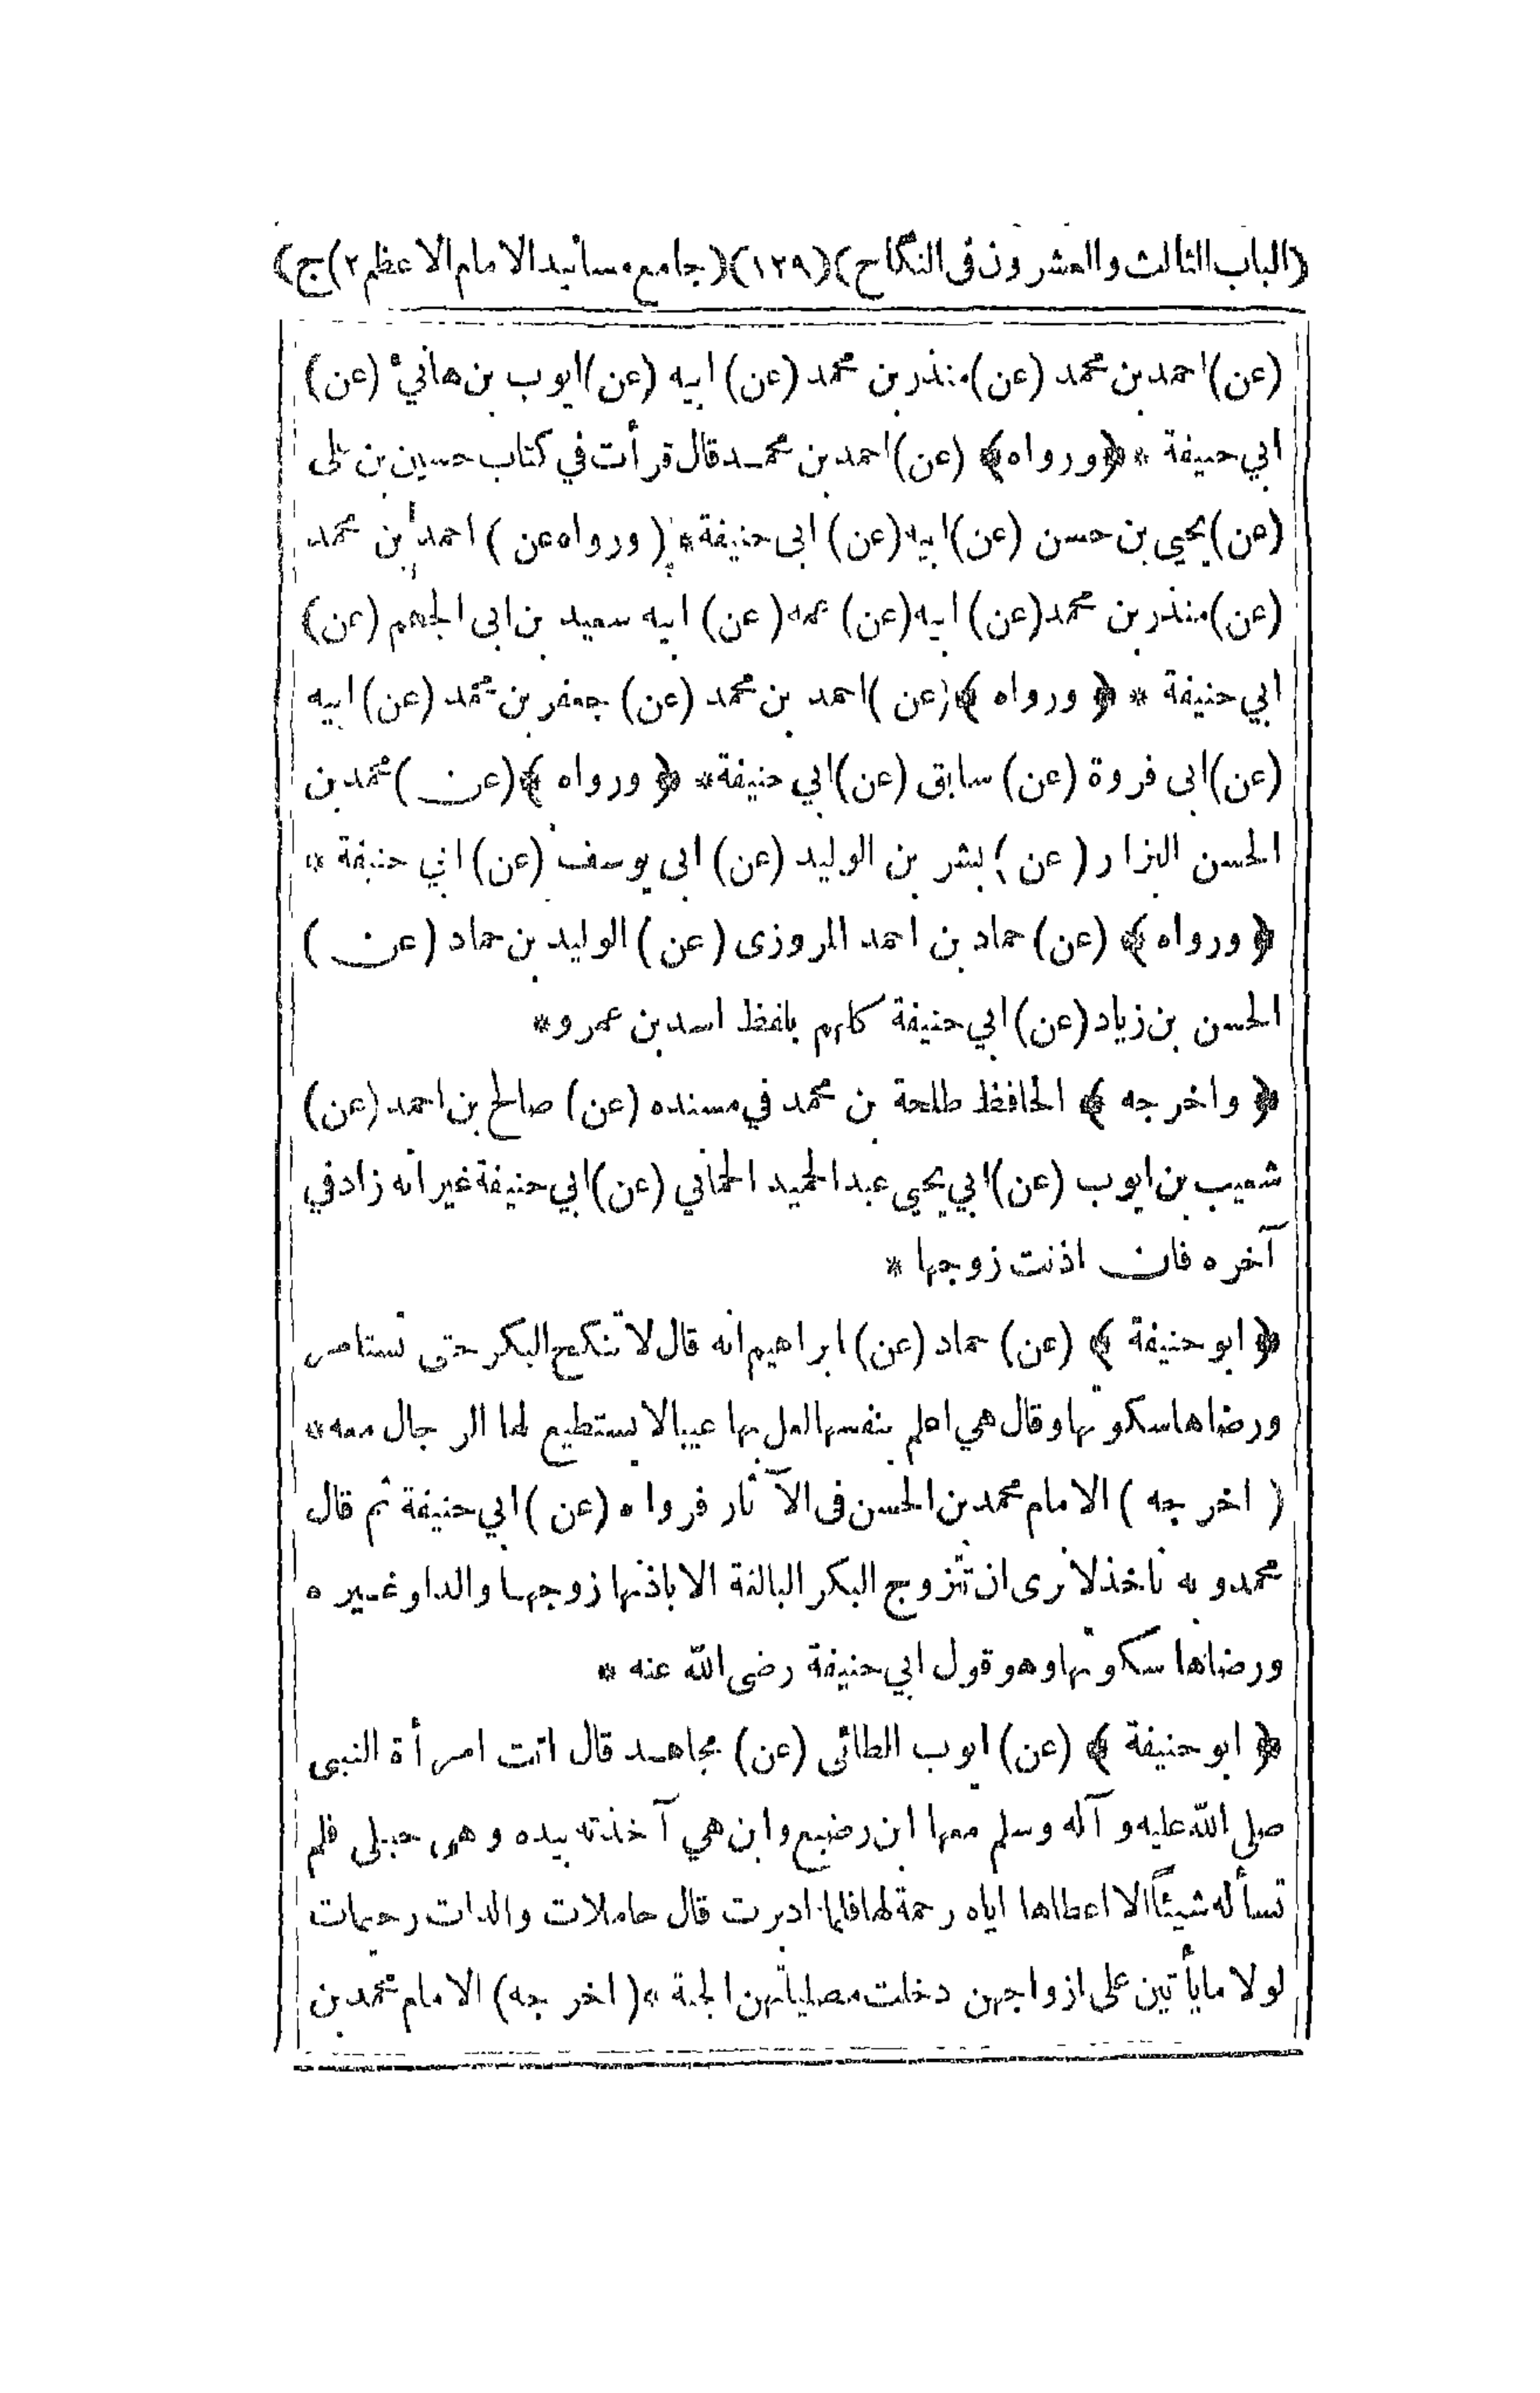 (الباب الثالث والعشرون فى النكاح) (١٢٩) (جامع مسانيد الامام الاعظم ٢) ج)
(عن) احمد بن محمد (عن) منذر بن محمد (عن) ابيه (عن) ايوب بن هانئ (عن)
ابي حنيفة * ﴿ورواه﴾ (عن) احمد بن محمد قال قرأت في كتاب حسين بن على
(عن) يحيى بن حسن (عن) ابيه (عن) ابى حنيفة * (ورواه عن) احمد بن محمد
(عن) منذر بن محمد (عن) ابيه (عن) عمه (عن) ابيه سعيد بن ابى الجهم (عن)
ابي حنيفة * ﴿ورواه﴾ (عن) احمد بن محمد (عن) جعفر بن محمد (عن) ابيه
(عن) ابى فروة (عن) سابق (عن) ابي حنيفة * ﴿ورواه﴾ (عن) محمد بن
الحسن البزار (عن) بشر بن الوليد (عن) ابى يوسف (عن) ابي حنيفة *
﴿ورواه﴾ (عن) حماد بن احمد المروزى (عن) الوليد بن حماد (عن)
الحسن بن زياد (عن) ابي حنيفة كلهم بلفظ اسد بن عمرو *
﴿واخرجه﴾ الحافظ طلحة بن محمد في مسنده (عن) صالح بن احمد (عن)
شعيب بن ايوب (عن) ابي يحيى عبد الحميد الحماني (عن) ابي حنيفة غير انه زاد في
آخره فان اذنت زوجها *
﴿ابو حنيفة﴾ (عن) حماد (عن) ابراهيم انه قال لا تنكح البكر حتى تستامر
ورضاها سكوتها وقال هي اعلم بنفسها لعل بها عيبا لا يستطيع لها الرجال معه *
(اخرجه) الامام محمد بن الحسن فى الآثار فرواه (عن) ابي حنيفة ثم قال
محمد وبه ناخذ لا نرى ان تتزوج البكر البالغة الا باذنها زوجها والد او غيره
ورضاها سكوتها وهو قول ابي حنيفة رضى الله عنه *
﴿ابو حنيفة﴾ (عن) ايوب الطائى (عن) مجاهد قال اتت امرأة النبى
صلى الله عليه وآله وسلم معها ابن رضيع وابن هي آخذته بيده وهى حبلى فلم
تسأله شيئاً الا اعطاها اياه رحمة لها فلما ادبرت قال حاملات والدات رحيمات
لولا ما يأتين على ازواجهن دخلت مصلياتهن الجنة * (اخرجه) الامام محمد بن